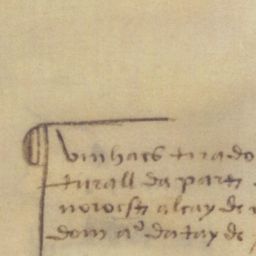 vinhaes tirado
turall da parte
noroeste alcay de
dom aº datay de